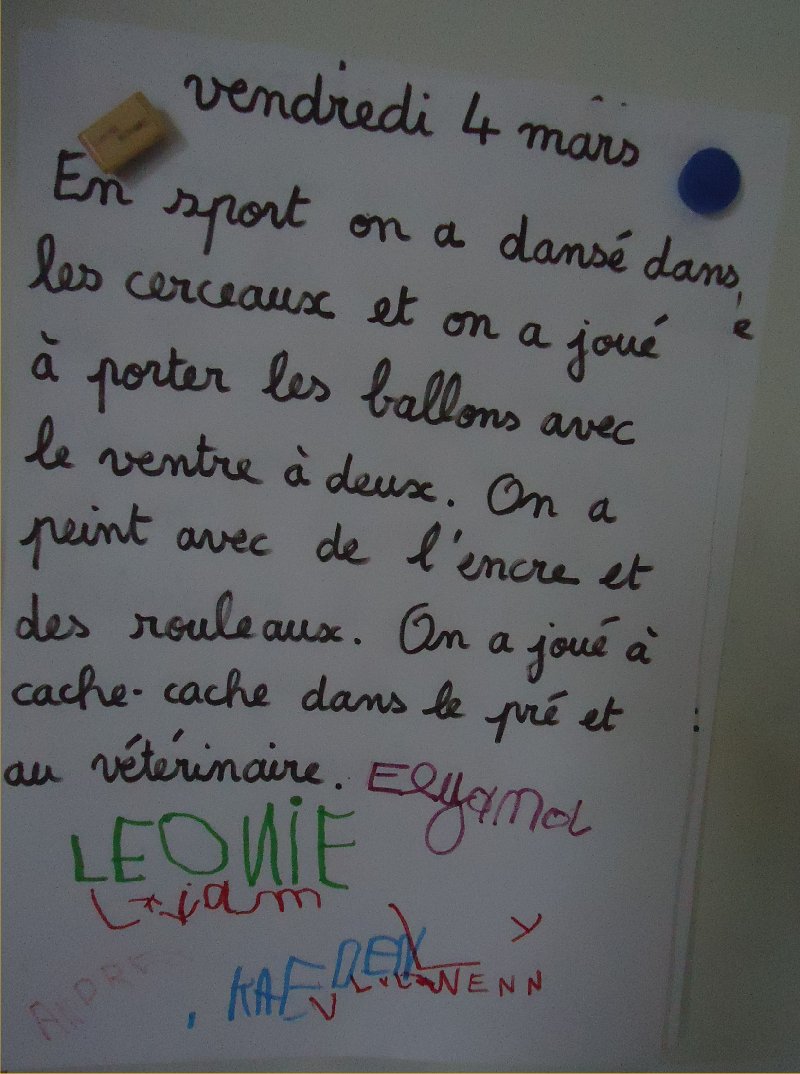 vendredi 4 mars
En sport on a dansé dans
les cerceaux et on a joué
à porter les ballons avec
le ventre à deux. On a
peint avec de l'encre et
des rouleaux. On a joué à
cache-cache dans le pré et
au vétérinaire.
LEONIE
KAEDEN